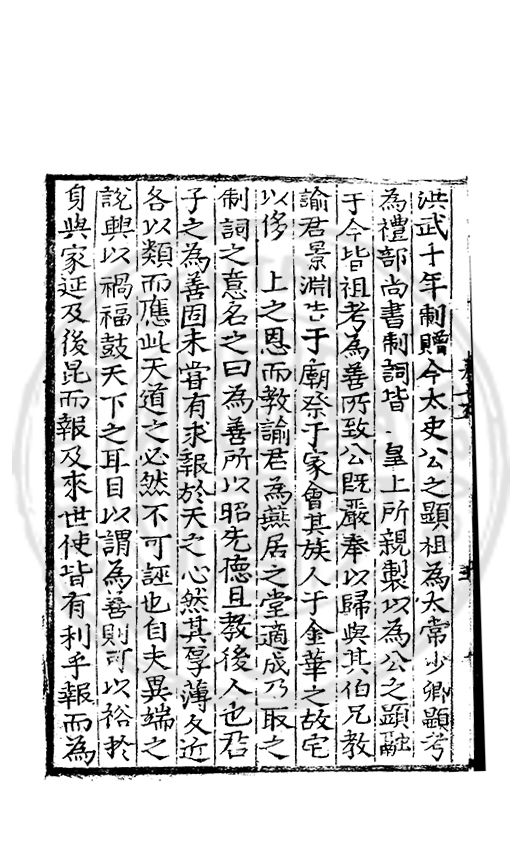 洪武十年制贈今太史公之顯祖為太常少卿顯考
為禮部尚書制詞皆 皇上所親製以為公之顯融
于今皆祖考為善所致公既嚴奉以歸與其伯兄教
諭君景淵告于廟祭于家會其族人于金華之故宅
以侈 上之恩而教諭君為燕居之堂適成乃取之
制詞之意名之曰為善所以昭先德且教後人也君
子之為善固未嘗有求報於天之心然其厚薄久近
各以類而應此天道之必然不可誣也自夫異端之
說興以禍福鼓天下之耳目以謂為善則可以裕於
身與家延及後昆而報及來世使皆有利乎報而為